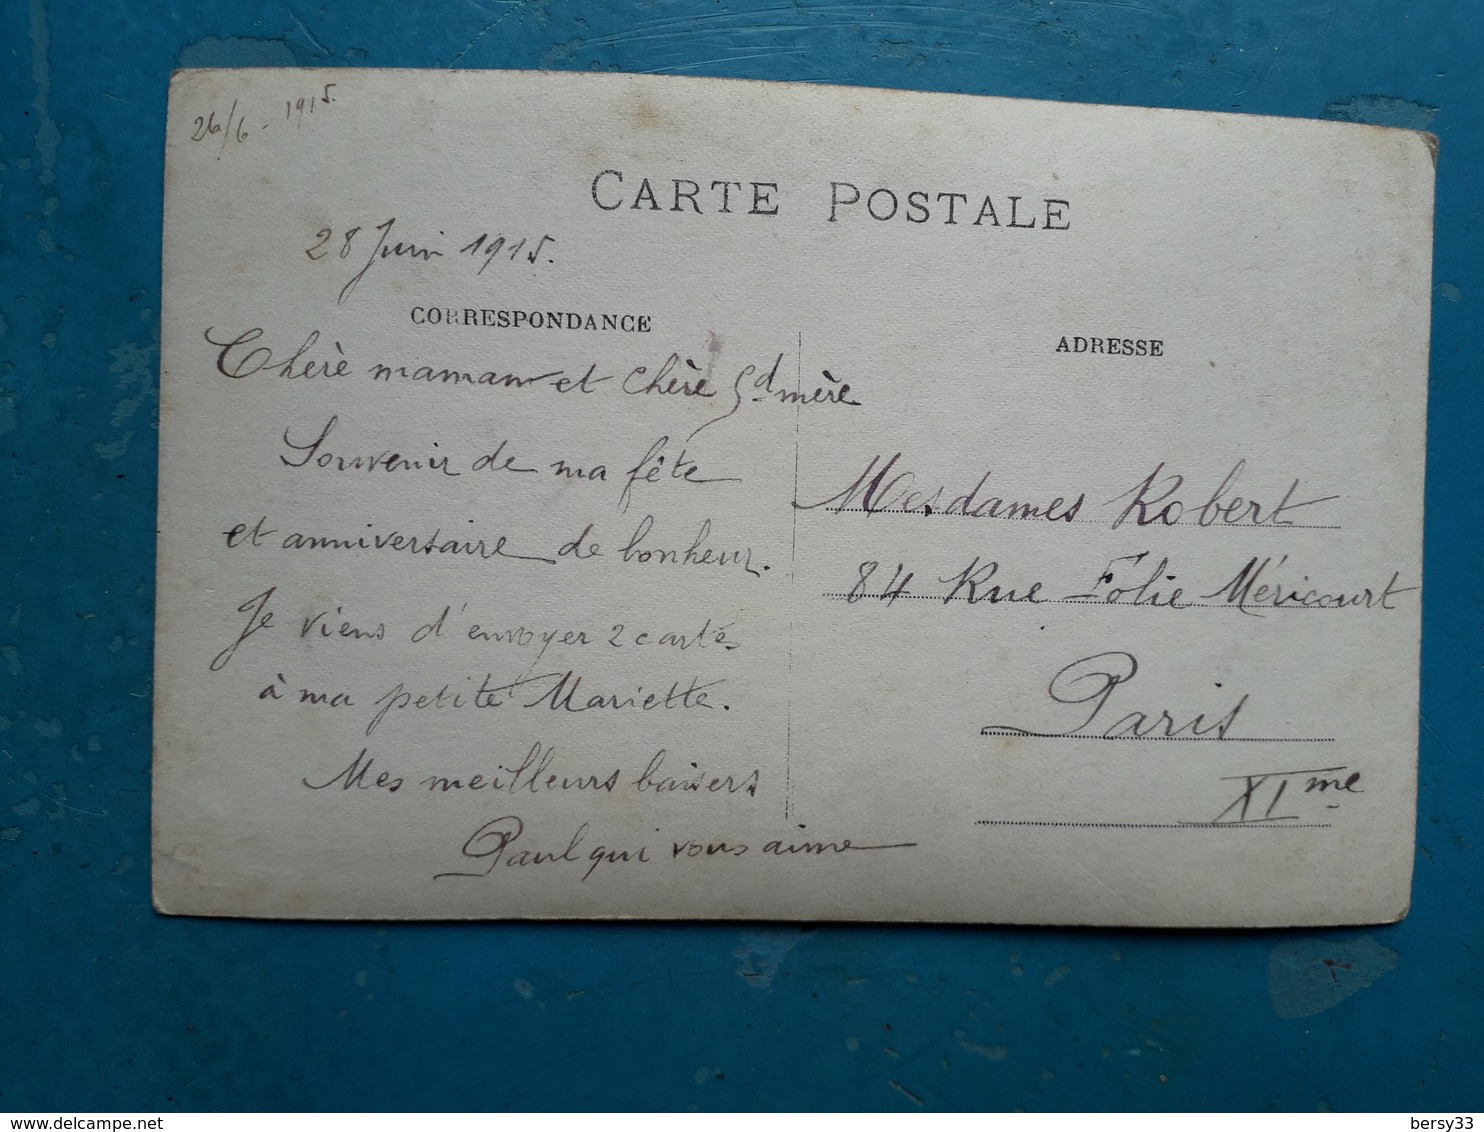 26/6 - 1915.
CARTE POSTALE
28 Juin 1915.
CORRESPONDANCE
Chère maman et chère Gd mère
Souvenir de ma fête
et anniversaire de bonheur.
Je viens d'envoyer 2 carte
à ma petite Mariette.
Mes meilleurs baisers
Paul qui vous aime
ADRESSE
Mesdames Robert
84 Rue Folie Méricourt
Paris
XIme
delcampe.net
bersy33